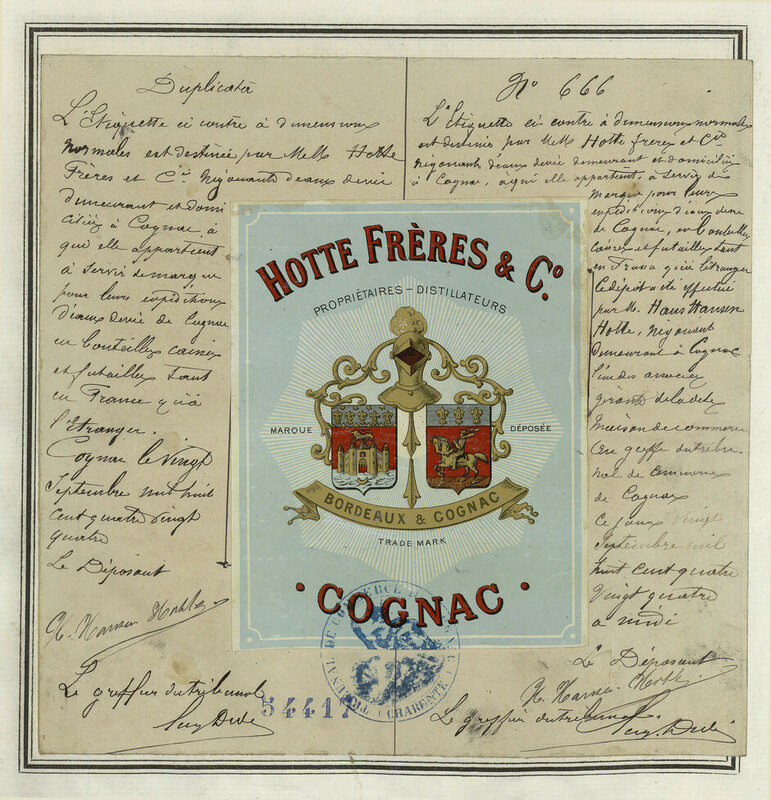 Duplicata
L'Etiquette ci contre à dimensions
normales est destinée par MM Hotte
Frères et Cie Négociants d'eaux de vie
demeurant et domi
ciliés à Cognac, à
qui elle appartient
à servir de marque
pour leurs expéditions
d'eaux de vie de Cognac
en bouteilles caisses
et futailles tant
en France qu'à
l'Etranger.
Cognac le Vingt
Septembre mil huit
cent quatre vingt
quatre
Le Déposant
H. Hansen Hotte
Le greffier du tribunal
No 666
L'Etiquette ci-contre à dimensions normales
est destinée par MM Hotte frères et Cie
négociants d'eaux de vie demeurant et domiciliés
à Cognac, à qui elle appartient, à servir de
marque pour leurs
expéditions d'eaux de vie
de Cognac, en bouteilles
caisses et futailles tant
en France qu'à l'étranger
Le dépôt a été effectué
par M. Hans Hansen
Hotte, négociant
demeurant à Cognac
l'un des associés
gérants de la dite
maison de commerce
au greffe du tribu-
nal de commerce
de Cognac
Ce jour vingt
Septembre mil
huit cent quatre
Vingt quatre
à midi
Le Déposant
H. Hansen Hotte
Le greffier du tribunal
HOTTE FRÈRES & Co.
PROPRIÉTAIRES – DISTILLATEURS
MARQUE DÉPOSÉE
BORDEAUX & COGNAC
TRADE MARK
COGNAC
TRIBUNAL DE COMMERCE
CHARENTE
54417